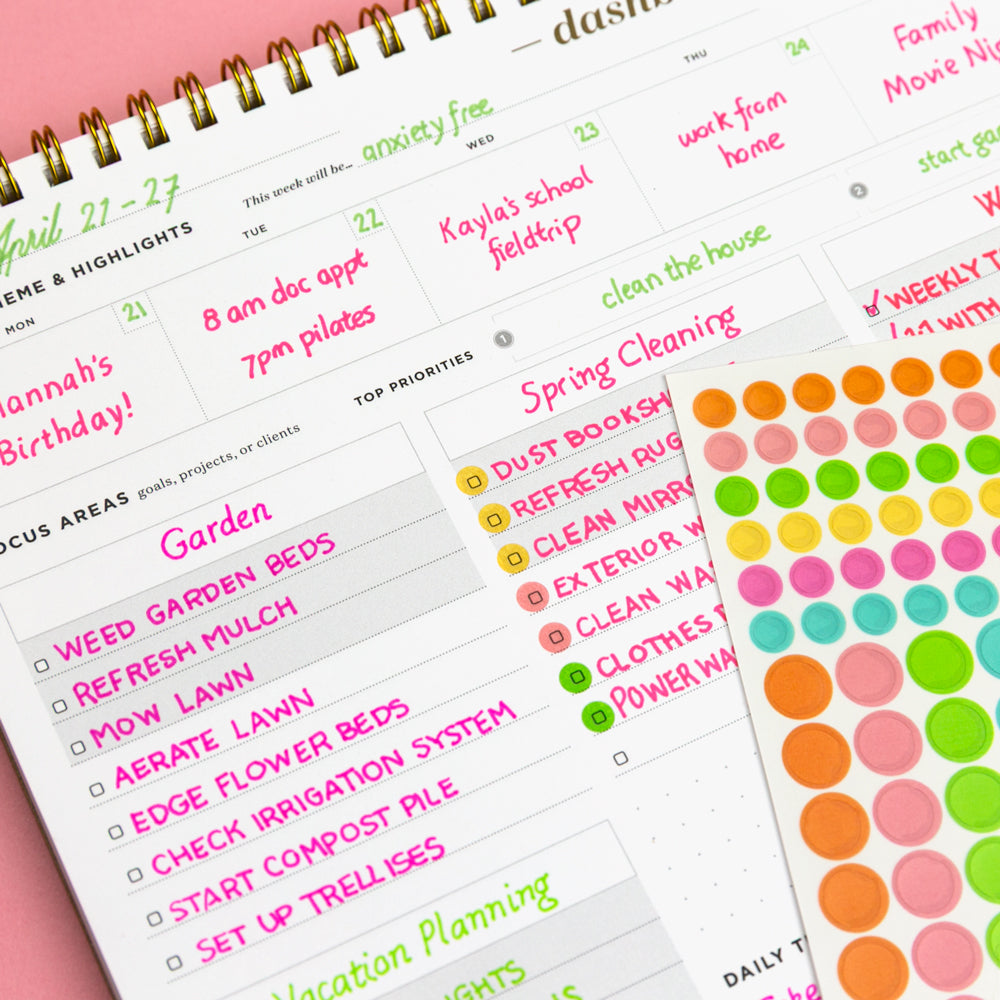 April 21-27
This week will be...
anxiety free
THEME & HIGHLIGHTS
MON
21
Birthday!
TUE
22
8 am doc appt
7pm pilates
WED
23
Kayla's school
fieldtrip
THU
24
work from
home
Family
Movie
TOP PRIORITIES
1
clean the house
2
start
FOCUS AREAS goals, projects, or clients
Garden
WEED GARDEN BEDS
REFRESH MULCH
MOW LAWN
AERATE LAWN
EDGE FLOWER BEDS
CHECK IRRIGATION SYSTEM
START COMPOST PILE
SET UP TRELLISES
Spring Cleaning
DUST
REFRESH
CLEAN
EXTERIOR
CLEAN
CLOTHES
POWER
WEEKLY
WITH
Vacation Planning
DAILY